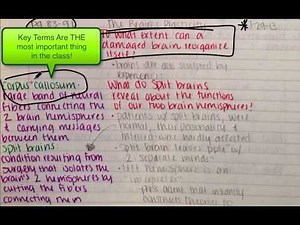 Pg 83-91
The Brain's Plasticity
Key Terms Are THE
most important thing
in the class!
To what extent can a
damaged brain reorganize
itself?
brains are sculpted by
experiences
Corpus Callosum:
large band of neural
fibers connecting the
2 brain hemispheres
& carrying messages
between them
What do split brains
reveal about the functions
of our two brain hemispheres?
patients w/ split brains, were
normal, their personality &
hardly affected
split brain leaves people w/
2 separate minds
left hemisphere is an
Split brains
condition resulting from
surgery that isolates the
brain's 2 hemispheres by
cutting the fibers
connecting them
that instantly
theories to